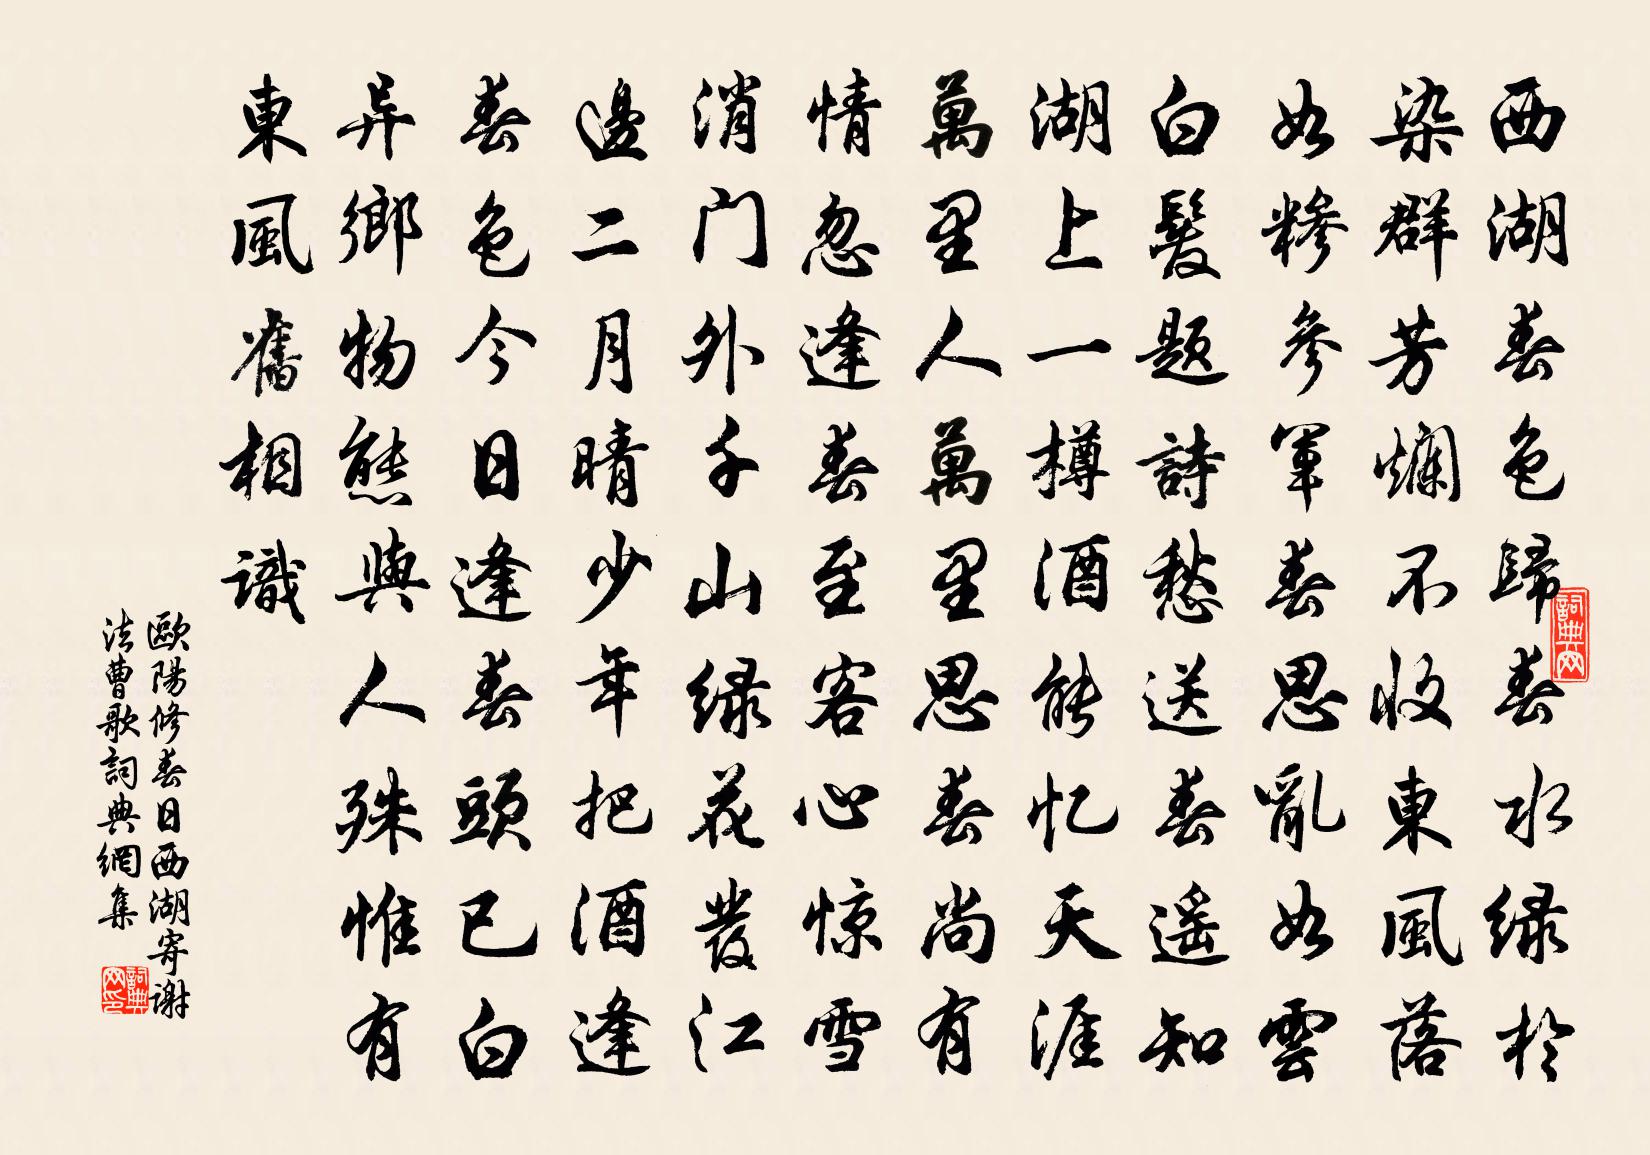 西湖春色歸春水绿於
染群芳爛不收東風落
如糝參軍春思亂如雲
白髮题詩愁送春遥知
湖上一樽酒能忆天涯
萬里人萬里思春尚有
情忽逢春至客心惊雪
消门外千山绿花發江
邊二月晴少年把酒逢
春色今日逢春頭已白
异鄉物態與人殊惟有
東風舊相識
歐陽修春日西湖寄谢
法曹歌詞典網集
詞典网
詞典网印